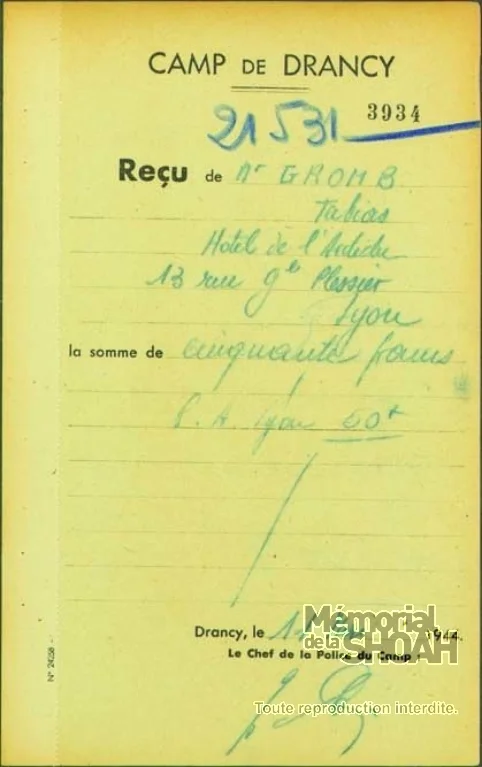 CAMP DE DRANCY
3934
21531
Reçu de Mr GROMB
Tobias
Hotel de l'Ardèche
13 rue Gl Plessier
Lyon
la somme de cinquante francs
Lyon 50f
Drancy, le 1944.
Le Chef de la Police du Camp
Mémorial
de la SHOAH
Toute reproduction interdite.